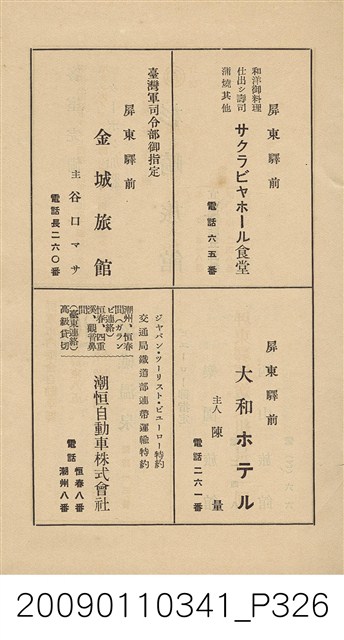 屏東驛前
サクラビヤホール食堂
電話六五番
和洋御料理
仕出シ壽司
蒲燒其他
臺灣軍司令部御指定
屏東驛前
金城旅館
主 谷口マサ
電話長二六〇番
屏東驛前
大和ホテル
主人 陳量
電話二六一番
ジャパン・ツーリスト・ビューロー特約
交通局鐵道部連帶運輸特約
潮恒自動車株式會社
電話 恒春八番
潮州八番
潮州、恒春
間(ガラン
ビ連絡)
恒春、四重
溪、觀音鼻
間
(臺東連絡)
高級貸切
20090110341_P326